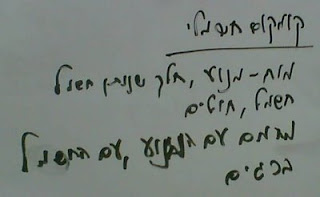 קומקום חשמלי
מוח - מנוע, חלק שנותן חשמל
חשמל, חוטים
מחמם עם המנוע, עם החשמל